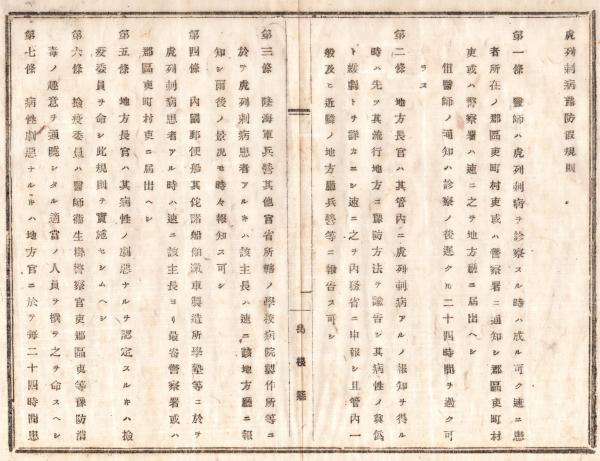 虎列剌病豫防假規則
第一條　醫師ハ虎列剌病ヲ診察スル時ハ成ル可ク速ニ患
者所在ノ郡區吏町村吏或ハ警察署ニ通知シ郡區吏町村
吏或ハ警察署ハ速ニ之ヲ地方廳ニ屆出ヘシ
但醫師ノ通知ハ診察ノ後遲クモ二十四時間ヲ過ク可
ラス
第二條　地方長官ハ其管內ニ虎列剌病アルノ報知ヲ得ル
時ハ先ツ其流行地方ニ豫防方法ヲ諭告シ其病性ノ眞僞
ト緩劇トヲ詳カニシ速ニ之ヲ內務省ニ申報シ且管內一
般及ヒ近縣ノ地方廳兵營等ニ報告ス可シ
島根縣
第三條　陸海軍兵營其他官省所轄ノ學校病院製作所等ニ
於テ虎列剌病患者アルキハ該主長ハ速ニ該地方廳ニ報
知シ爾後ノ景况モ時々報知ス可シ
第四條　內國郵便船其佗諸船舶滊車製造所學塾等ニ於テ
虎列剌病患者アル時ハ速ニ該主長ヨリ最寄警察署或ハ
郡區吏町村吏ニ屆出ヘシ
第五條　地方長官ハ其病性ノ劇惡ナルヲ認定スルキハ撿
疫委員ヲ命シ此規則ヲ實施セシムヘシ
第六條　撿疫委員ハ醫師衞生掛警察官吏郡區吏等豫防消
毒ノ趣意ヲ通曉シタル適當ノ人員ヲ撰ヲ之ヲ命スヘシ
第七條　病性劇惡ナルキハ地方官ニ於テ每二十四時間患